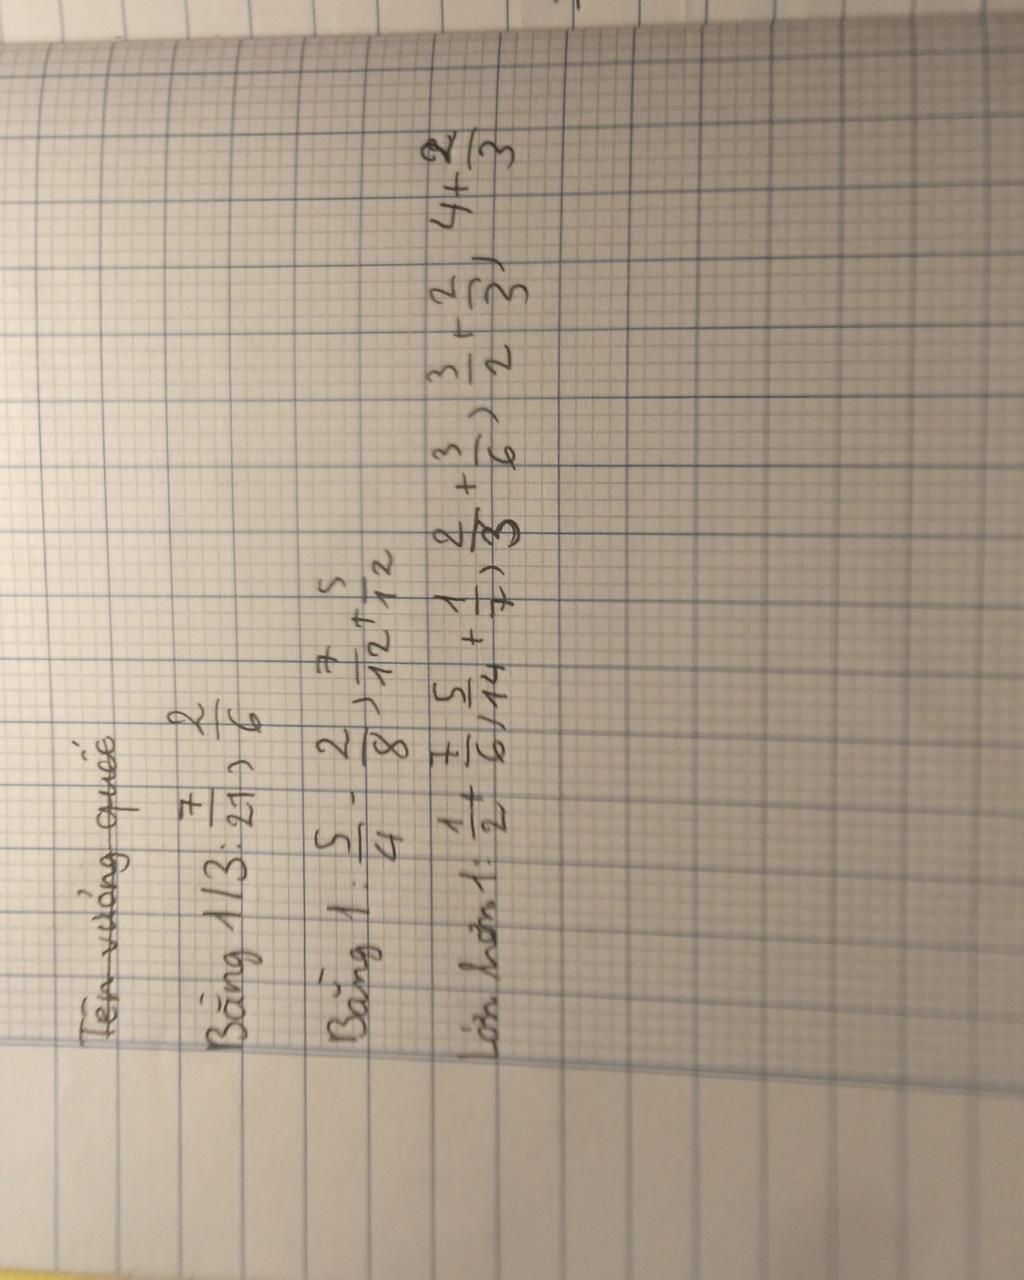 Tên vương quốc
Bằng 1/3: 7/21, 2/6
Bằng 1: 5/4 - 2/8, 7/12 + 5/12
Lớn hơn 1: 1/2 + 7/6, 5/14 + 1/7, 2/3 + 3/6, 3/2 + 2/3, 4 + 2/3